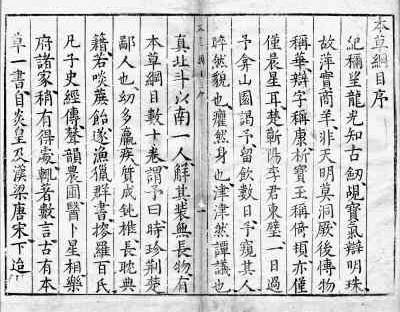 本草綱目序
紀稱望龍光知古劍覘寶氣辯明珠
故萍實商羊非天明莫洞厥後博物
稱華辯字稱康析寶玉稱倚頓亦僅
僅晨星耳楚蘄陽李君東璧一日過
予弇山園謁予留飲數日予窺其人
睟然貌也癯然身也津津然譚議也
真北斗以南一人解其裝無長物有
本草綱目數十卷謂予曰時珍荊楚
鄙人也幼多羸疾質成鈍椎長耽典
籍若啖蔗飴遂漁獵群書搜羅百氏
凡子史經傳聲韻農圃醫卜星相樂
府諸家稍有得處輒著數言古有本
草一書自炎皇及漢梁唐宋下迨